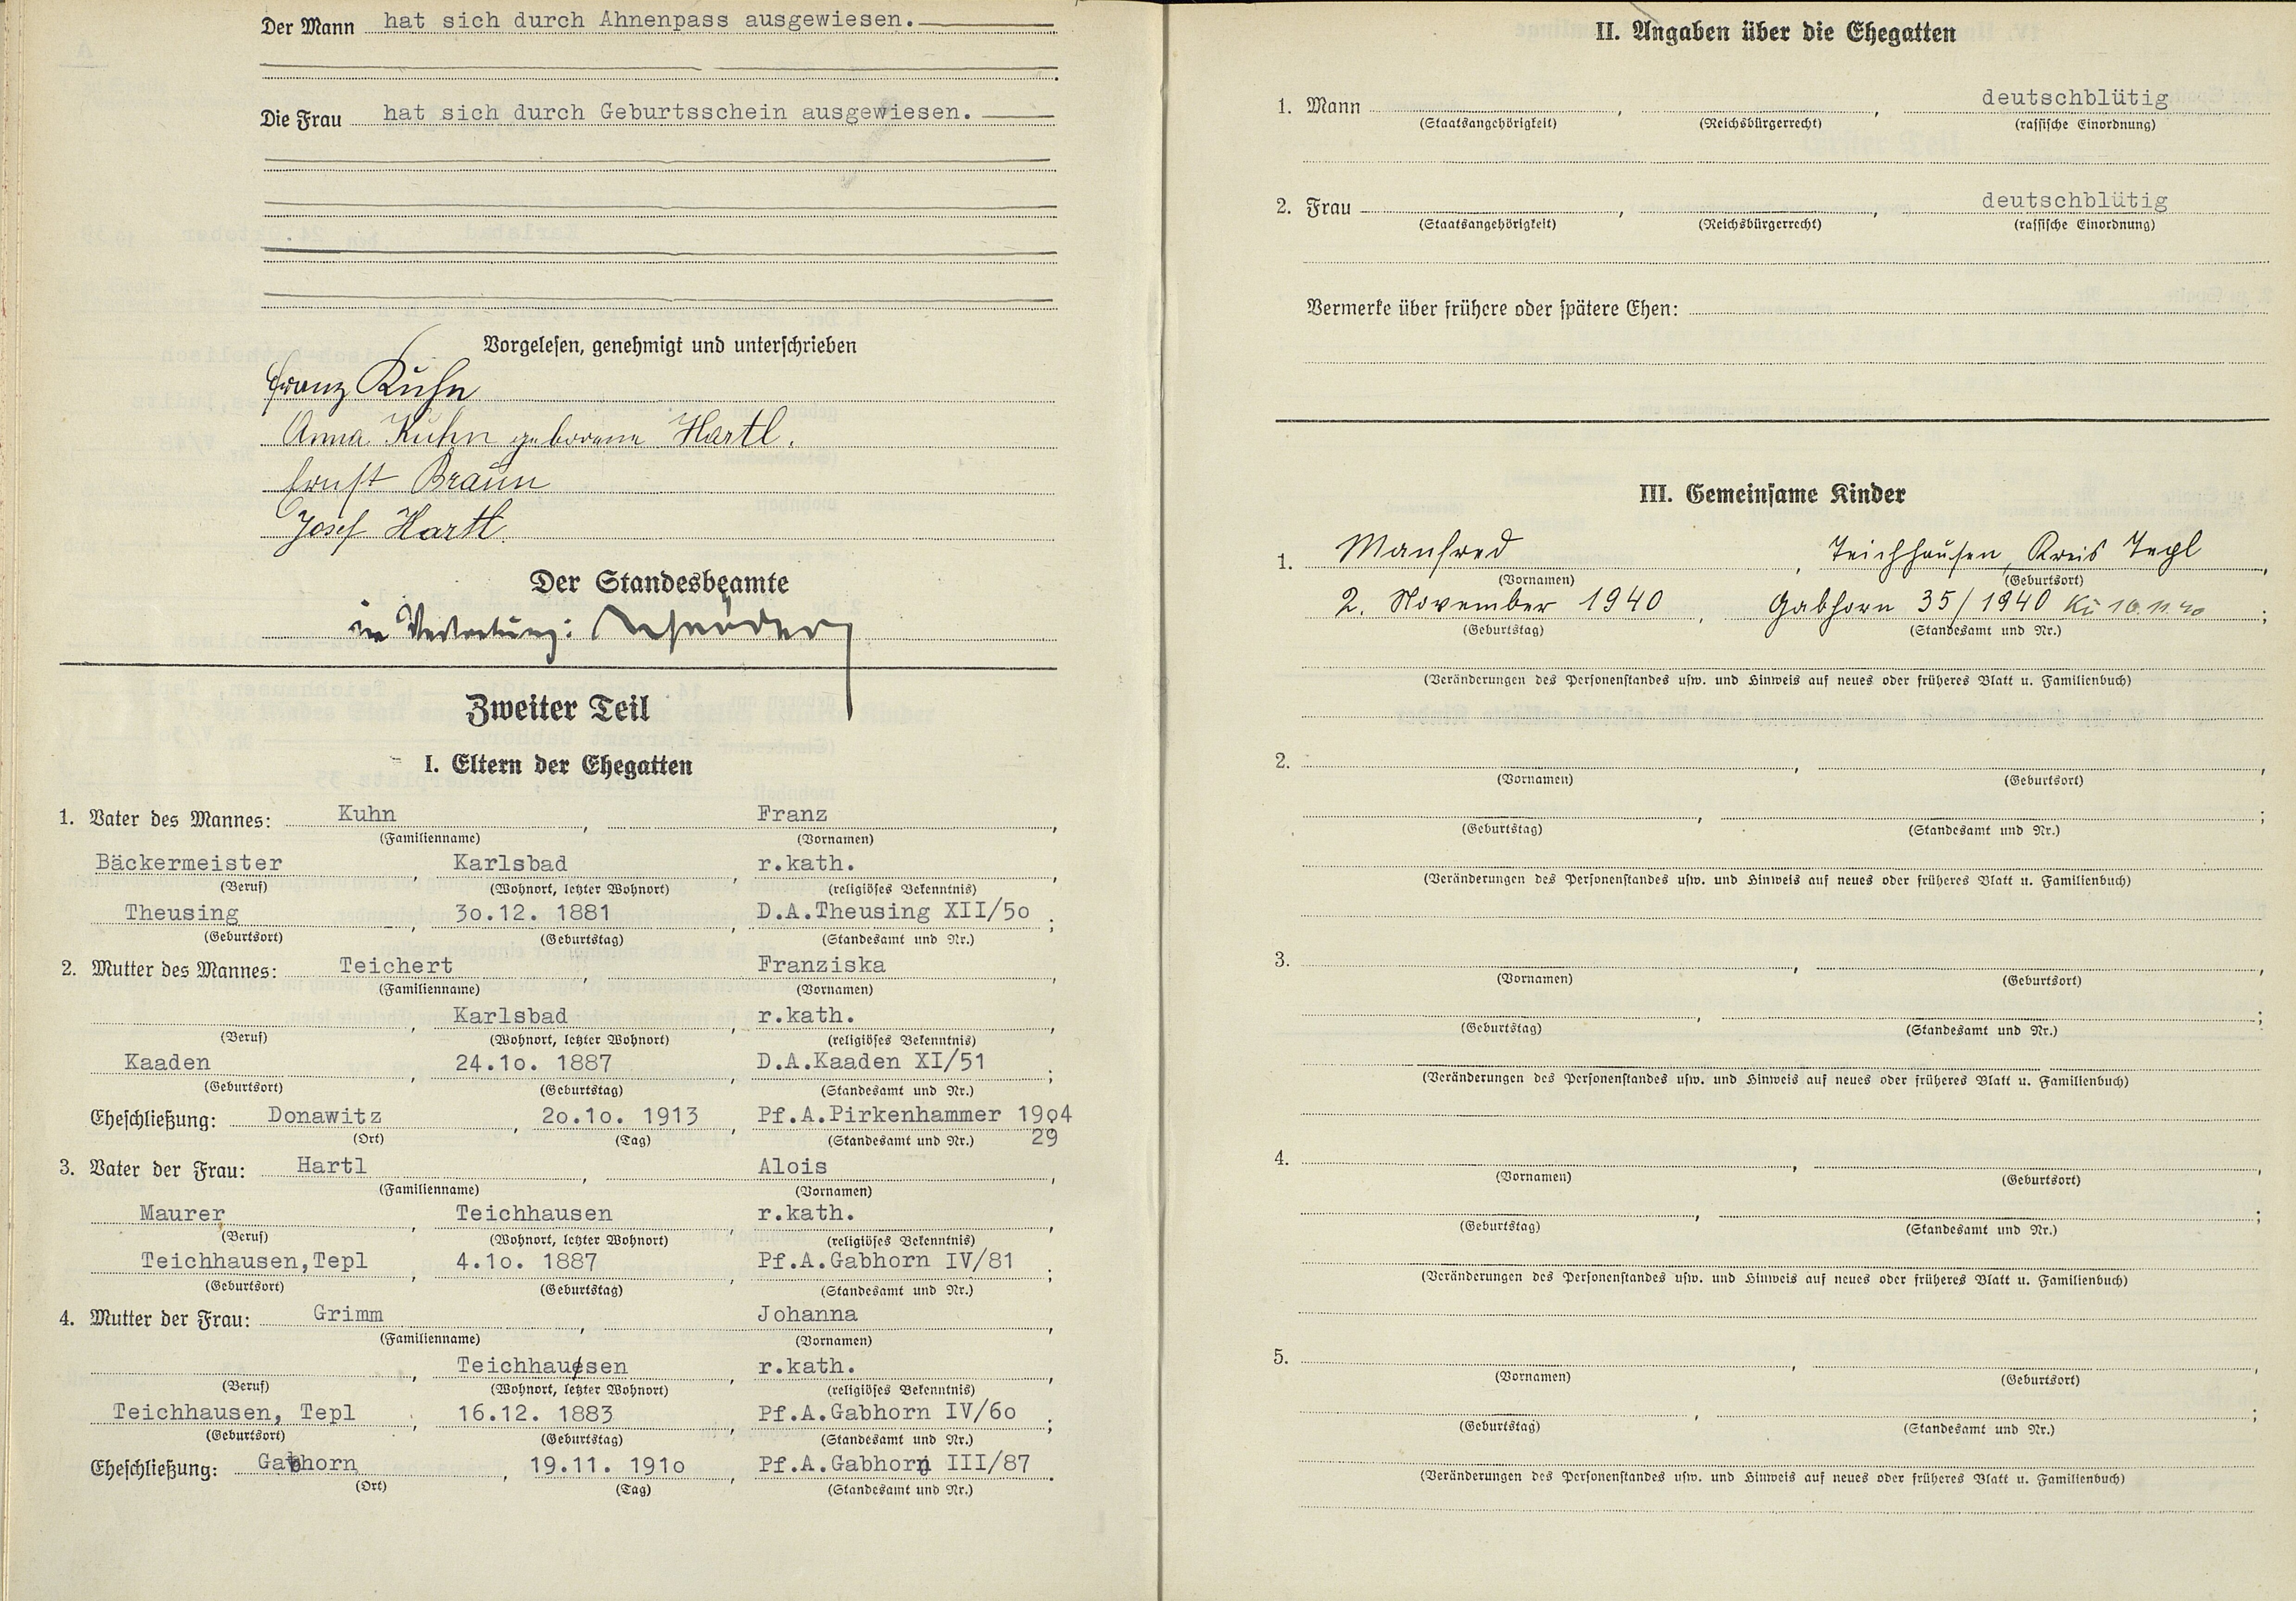 Der Mann hat sich durch Ahnenpass ausgewiesen.
Die Frau hat sich durch Geburtsschein ausgewiesen.
Vorgelesen, genehmigt und unterschrieben
Franz Kuhn
Anna Kuhn geborene Hartl.
Ernst Braun
Josef Hartl.
Der Standesbeamte
in Vertretung:
Zweiter Teil
I. Eltern der Ehegatten
1. Vater des Mannes: Kuhn, Franz,
(Familienname) (Vornamen)
Bäckermeister, Karlsbad, r.kath.,
(Beruf) (Wohnort, letzter Wohnort) (religiöses Bekenntnis)
Theusing, 3o.12. 1881, D.A.Theusing XII/5o;
(Geburtsort) (Geburtstag) (Standesamt und Nr.)
2. Mutter des Mannes: Teichert, Franziska,
(Familienname) (Vornamen)
, Karlsbad, r.kath.,
(Beruf) (Wohnort, letzter Wohnort) (religiöses Bekenntnis)
Kaaden, 24.1o. 1887, D.A.Kaaden XI/51;
(Geburtsort) (Geburtstag) (Standesamt und Nr.)
Eheschließung: Donawitz, 2o.1o. 1913, Pf.A.Pirkenhammer 19o4
(Ort) (Tag) (Standesamt und Nr.) 29
3. Vater der Frau: Hartl, Alois,
(Familienname) (Vornamen)
Maurer, Teichhausen, r.kath.,
(Beruf) (Wohnort, letzter Wohnort) (religiöses Bekenntnis)
Teichhausen,Tepl, 4.1o. 1887, Pf.A.Gabhorn IV/81;
(Geburtsort) (Geburtstag) (Standesamt und Nr.)
4. Mutter der Frau: Grimm, Johanna,
(Familienname) (Vornamen)
, Teichhausen, r.kath.,
(Beruf) (Wohnort, letzter Wohnort) (religiöses Bekenntnis)
Teichhausen, Tepl, 16.12. 1883, Pf.A.Gabhorn IV/6o;
(Geburtsort) (Geburtstag) (Standesamt und Nr.)
Eheschließung: Gabhorn, 19.11. 191o, Pf.A.Gabhorn III/87.
(Ort) (Tag) (Standesamt und Nr.)
II. Angaben über die Ehegatten
1. Mann , , deutschblütig
(Staatsangehörigkeit) (Reichsbürgerrecht) (rassische Einordnung)
2. Frau , , deutschblütig
(Staatsangehörigkeit) (Reichsbürgerrecht) (rassische Einordnung)
Vermerke über frühere oder spätere Ehen:
III. Gemeinsame Kinder
1. Manfred, Teichhausen, Kreis Tepl,
(Vornamen) (Geburtsort)
2. November 1940, Gabhorn 35/1940 Kü 10.11.40;
(Geburtstag) (Standesamt und Nr.)
(Veränderungen des Personenstandes usw. und Hinweis auf neues oder früheres Blatt u. Familienbuch)
2. , ,
(Vornamen) (Geburtsort)
, ;
(Geburtstag) (Standesamt und Nr.)
(Veränderungen des Personenstandes usw. und Hinweis auf neues oder früheres Blatt u. Familienbuch)
3. , ,
(Vornamen) (Geburtsort)
, ;
(Geburtstag) (Standesamt und Nr.)
(Veränderungen des Personenstandes usw. und Hinweis auf neues oder früheres Blatt u. Familienbuch)
4. , ,
(Vornamen) (Geburtsort)
, ;
(Geburtstag) (Standesamt und Nr.)
(Veränderungen des Personenstandes usw. und Hinweis auf neues oder früheres Blatt u. Familienbuch)
5. , ,
(Vornamen) (Geburtsort)
, ;
(Geburtstag) (Standesamt und Nr.)
(Veränderungen des Personenstandes usw. und Hinweis auf neues oder früheres Blatt u. Familienbuch)